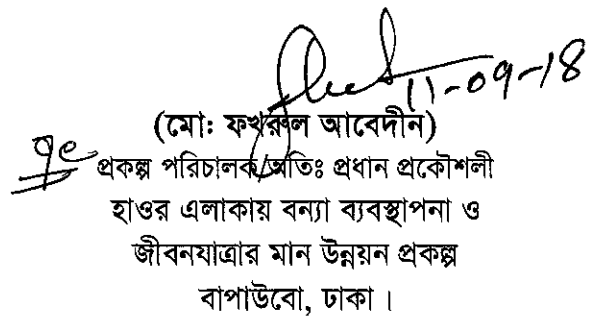 11-09-18
(মোঃ ফখরুল আবেদীন)
প্রকল্প পরিচালক/অতিঃ প্রধান প্রকৌশলী
হাওর এলাকায় বন্যা ব্যবস্থাপনা ও
জীবনযাত্রার মান উন্নয়ন প্রকল্প
বাপাউবো, ঢাকা ।